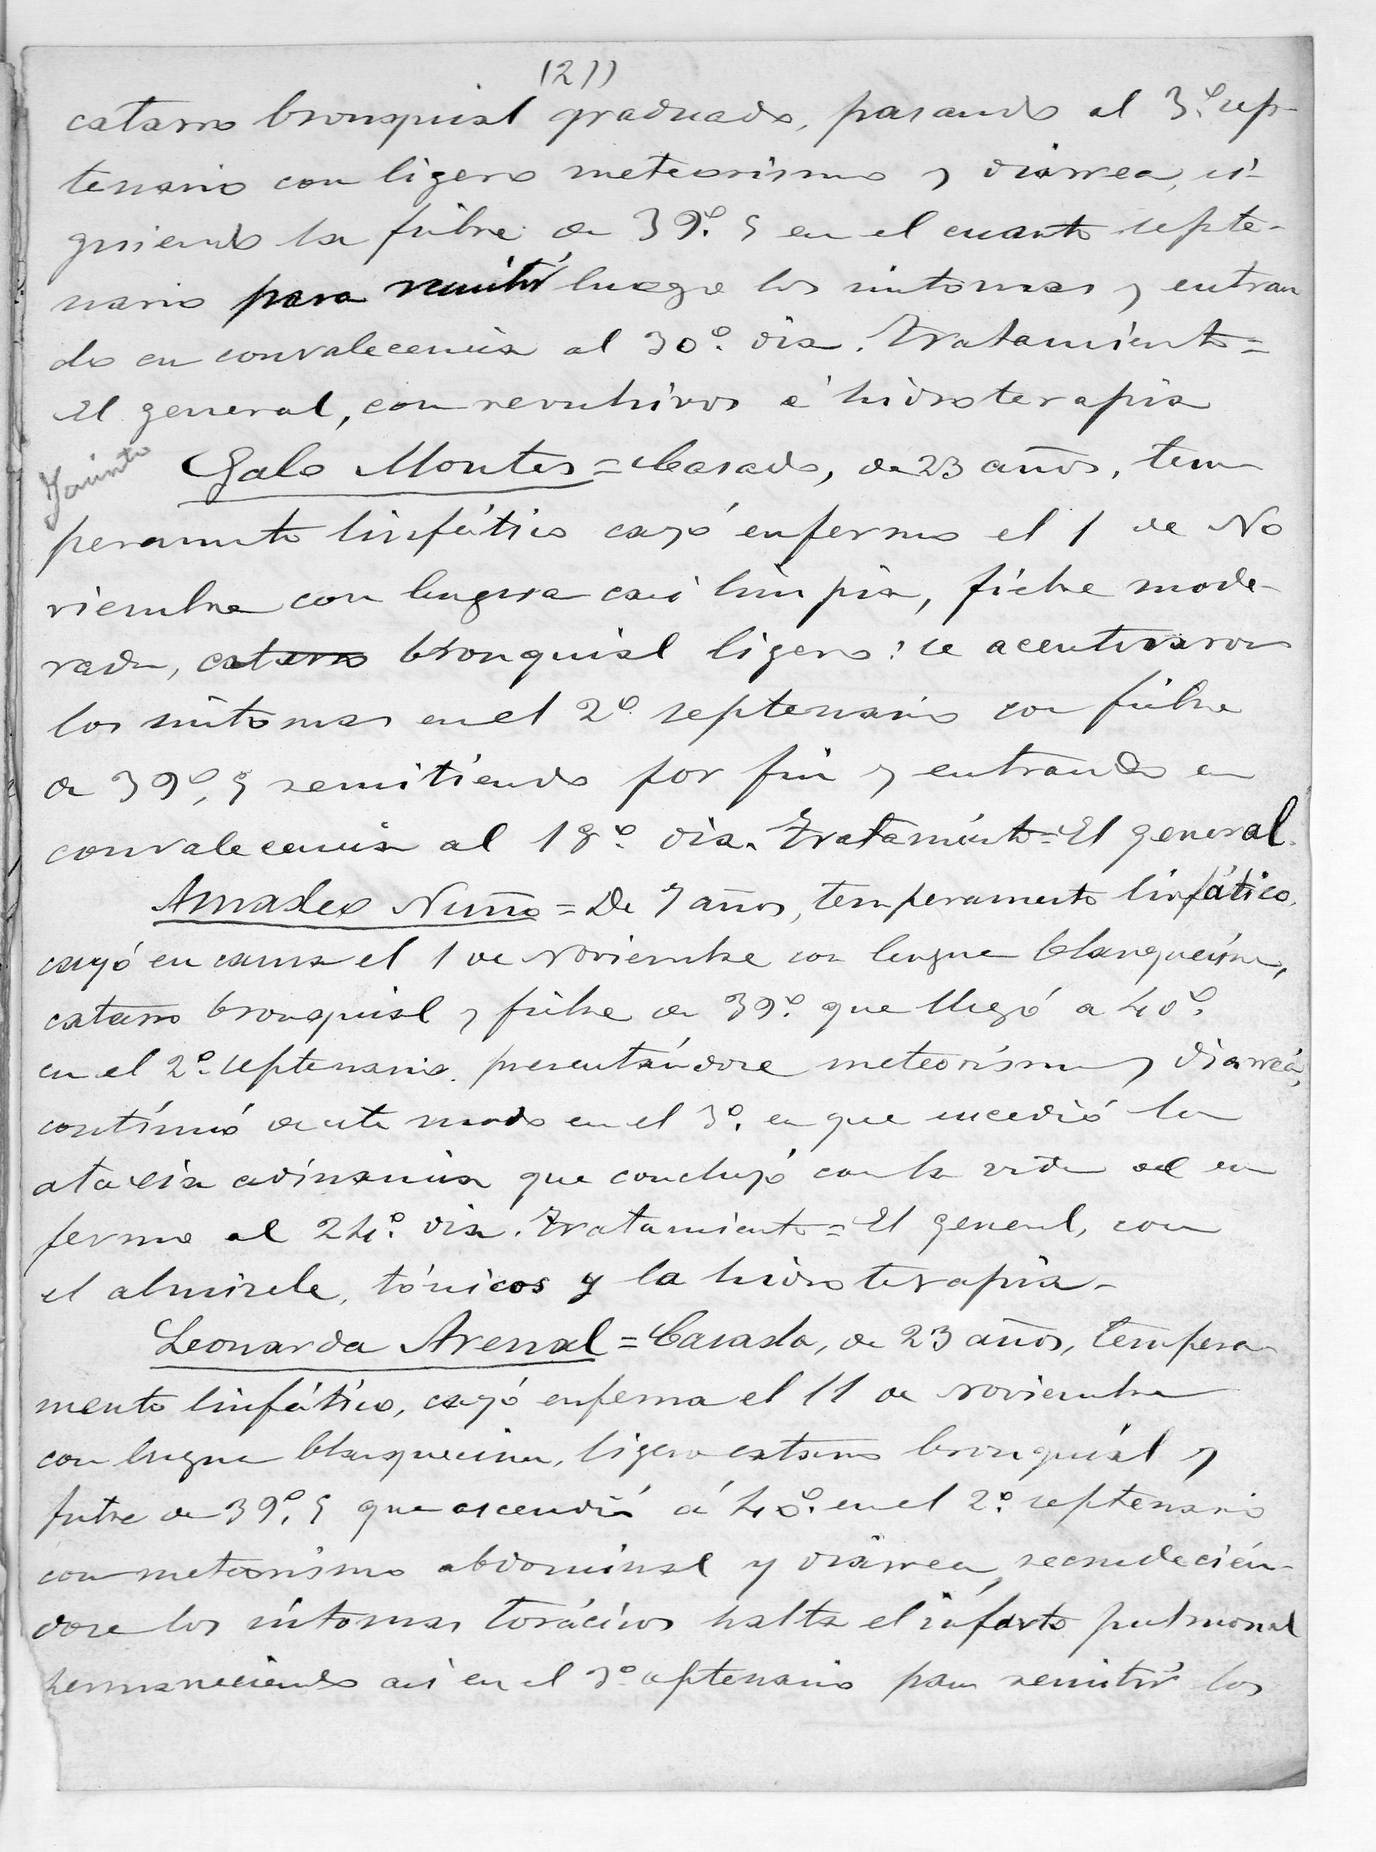 (27)
catarro bronquial graduado, pasando al 3.º sep-
tenario con ligero meteorismo y diarrea, si-
guiendo la fiebre de 39.º 5 en el cuarto septe-
nario para remitir luego los sintomas y entran
do en convalecencia al 30.º dia. Tratamiento=
El general, con revulsivos é hidroterapia
Jacinto
Galo Montes = Casado, de 23 años, tem
peramento linfático cayó enfermo el 1 de No
viembre con lengua casi limpia, fiebre mode-
rada, catarro bronquial ligero: se acentuaron
los sintomas en el 2º septenario con fiebre
de 39º,5 remitiendo por fin y entrando en
convalecencia al 18.º dia. Tratamiento=El general.
Amadeo Nuño = De 7 años, temperamento linfático,
cayó en cama el 1 de Noviembre con lengua blanquecina,
catarro bronquial y fiebre de 39.º que llegó a 40.º
en el 2.º septenario presentándose meteorismo y diarrea,
contínuó de este modo en el 3.º en que sucedió la
ataxia adinamia que concluyó con la vida del en
fermo al 24.º dia. Tratamiento = El general, con
el almizcle, tónicos y la hidroterapia-
Leonarda Arenal = Casada, de 23 años, tempera-
mento linfático, cayó enferma el 11 de Noviembre
con lengua blanquecina, ligero catarro bronquial y
fiebre de 39.º 5 que ascendió á 40.º en el 2.º septenario
con meteorismo abdominal y diarrea, recrudecién-
dose los sintomas torácicos hasta el infarto pulmonal
permaneciendo asi en el 3.º septenario para remitir los